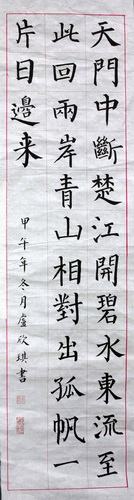 天門中斷楚江開碧水東流至
此回兩岸青山相對出孤帆一
片日邊来
甲午年冬月盧欣琪書